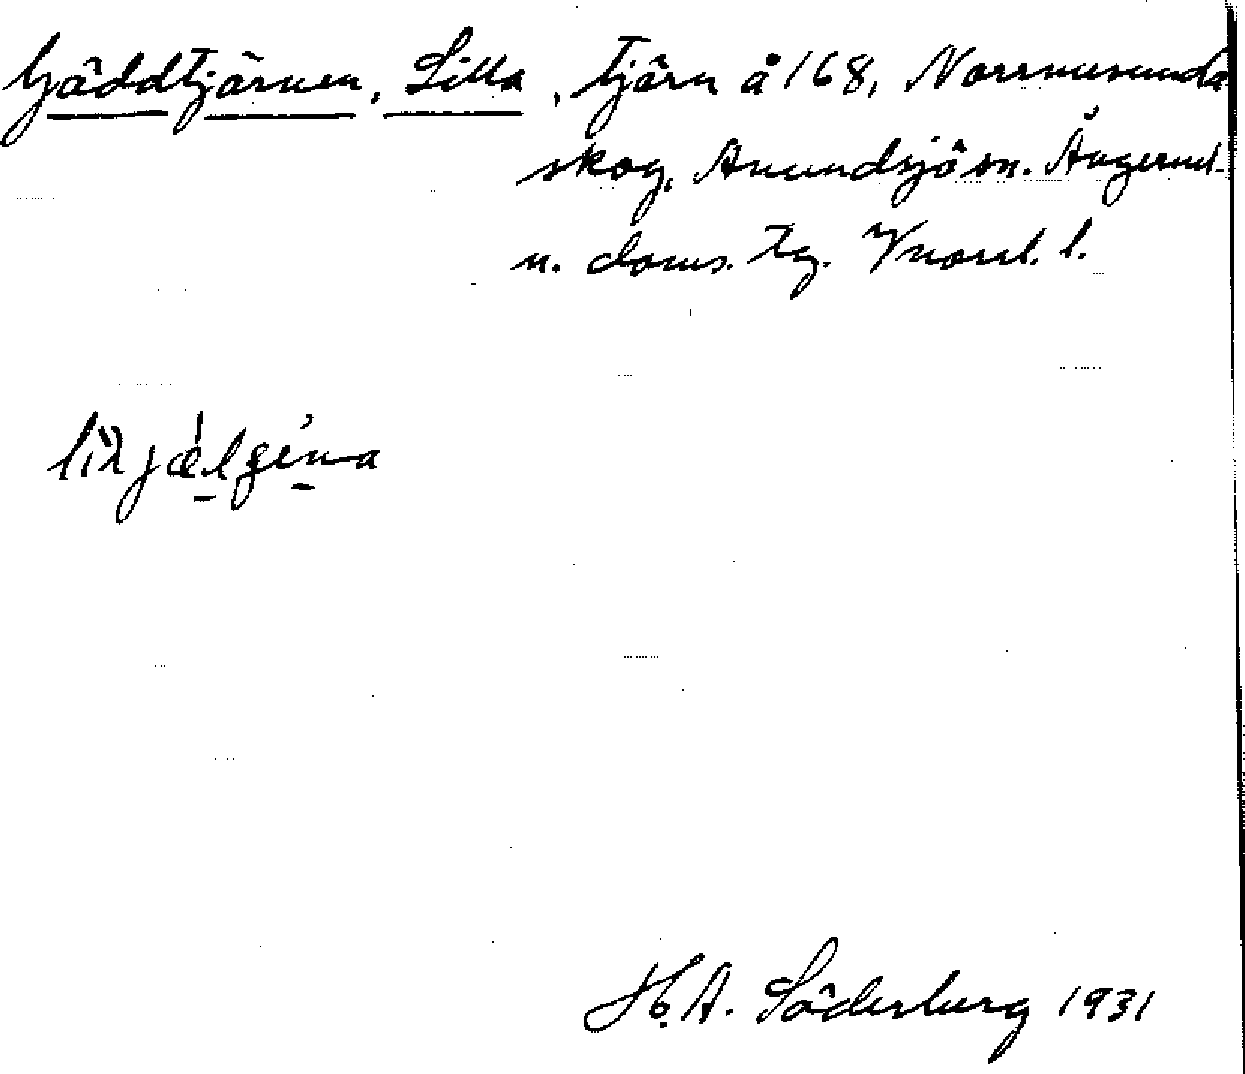 Gäddtjärnen, Lilla, tjärn å 168, Norrmesunda
skog, Anundsjö sn. Ångerml.
n. doms. tg. Vnorrl. l.
H. A. Söderberg 1931